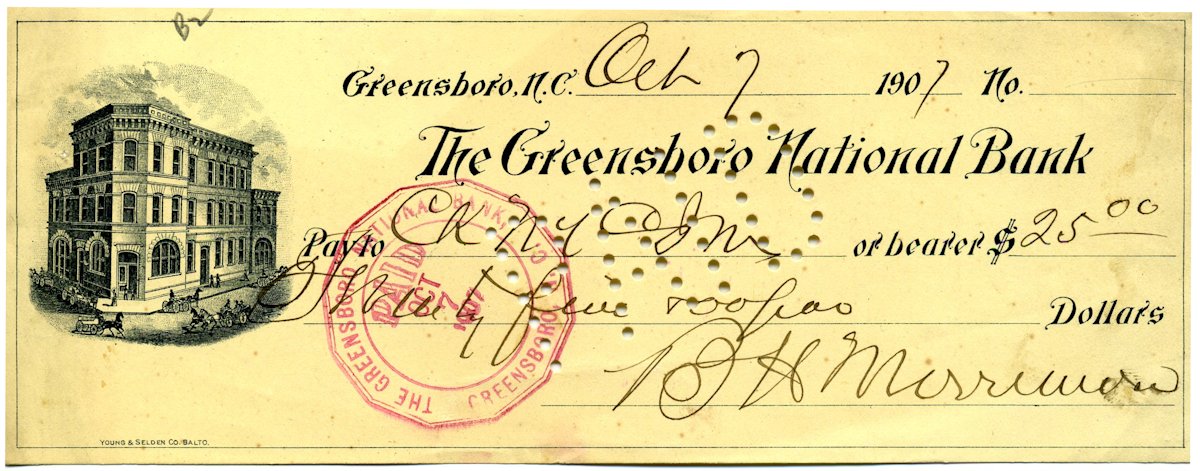 B2
Greensboro, N.C. Oct 7 1907 No.
The Greensboro National Bank
Pay to Ck NY or bearer $ 25 00
Twenty five & 00/100 Dollars
B H Merrimon
THE GREENSBORO NATIONAL BANK, GREENSBORO, N.C.
PAID
OCT
7
1907
YOUNG & SELDEN CO. BALTO.